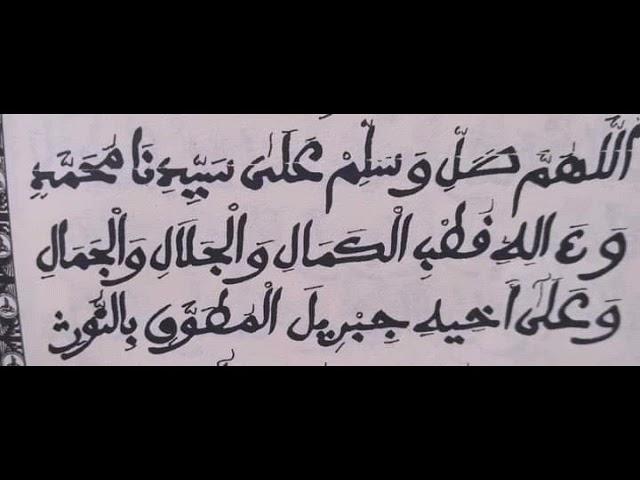 اَللَّهُمَّ صَلِّ وَسَلِّمْ عَلَىٰ سَيِّدِنَا مُحَمَّدٍ
وَءَالِهِ قُطْبِ الْكَمَالِ وَالْجَلَالِ وَالْجَمَالِ
وَعَلَىٰ أَخِيهِ جِبْرِيلَ الْمُطَوَّقِ بِالنُّورِ